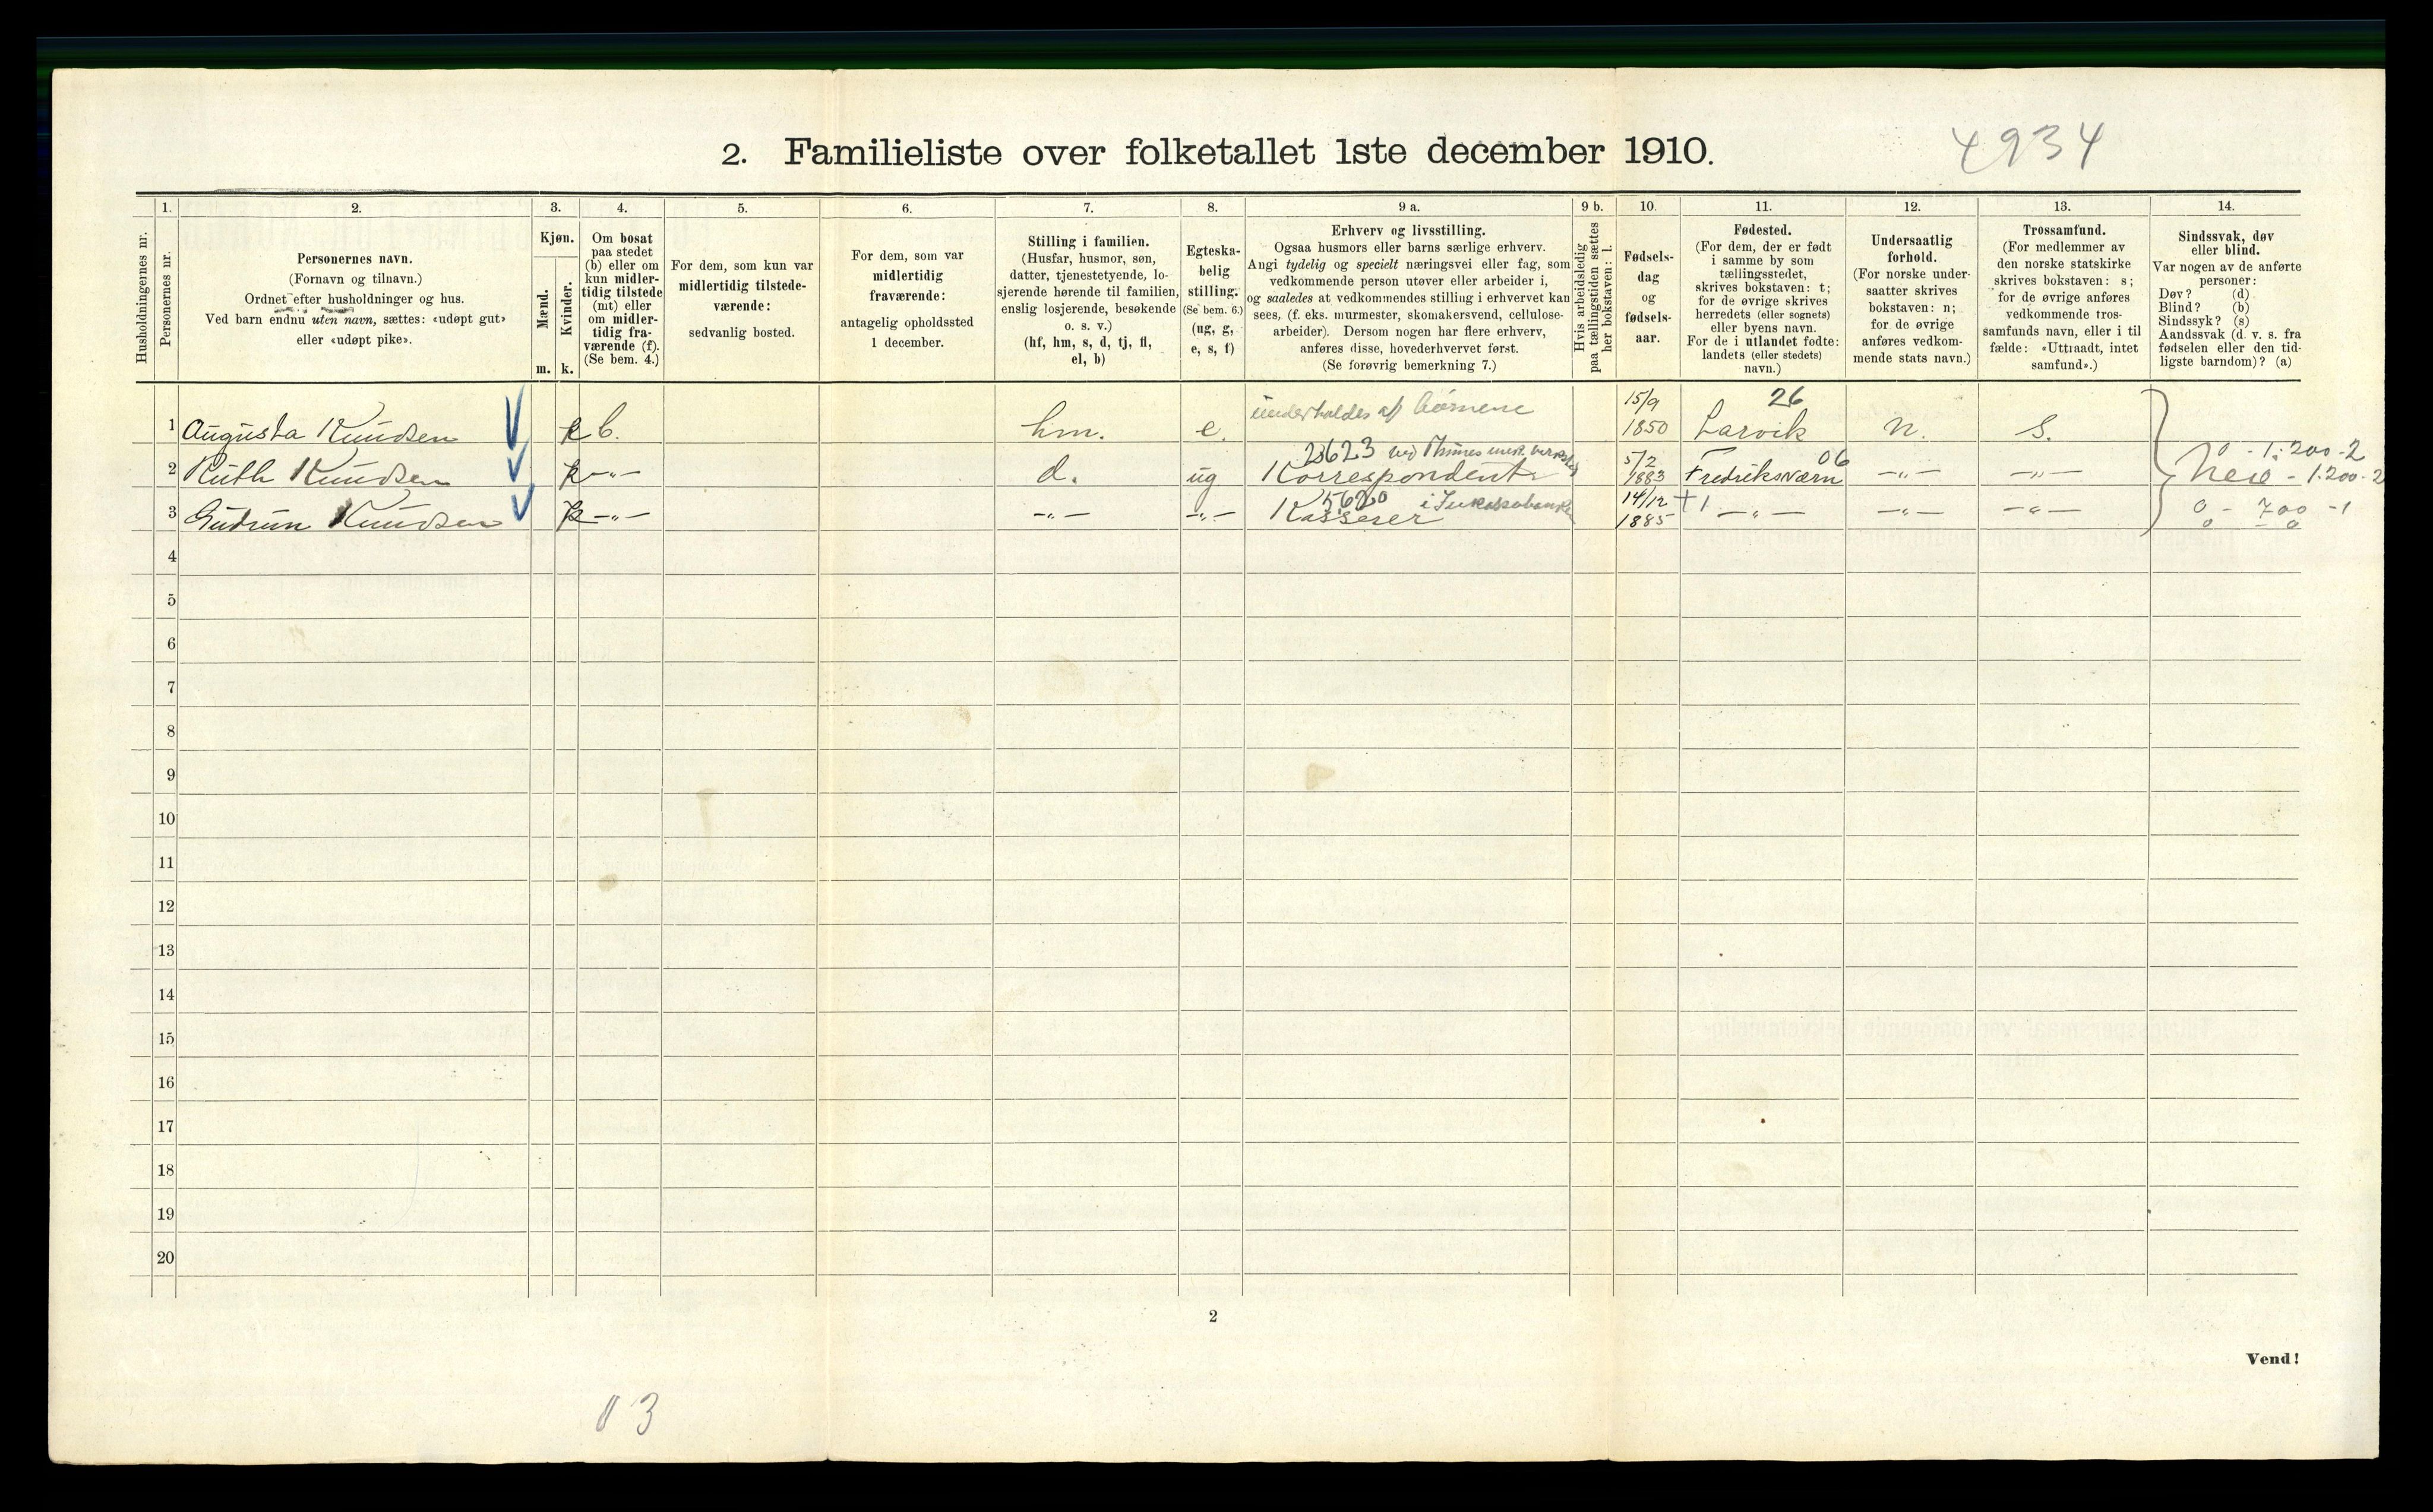 4934
2. Familieliste over folketallet 1ste december 1910.
Husholdningernes nr.
1.
Personernes nr.
2.
Personernes navn.
(Fornavn og tilnavn.)
Ordnet efter husholdninger og hus.
Ved barn endnu uten navn, sættes: «udøpt gut»
eller «udøpt pike».
3.
Kjøn.
Mænd.
Kvinder.
m. k.
4.
Om bosat
paa stedet
(b) eller om
kun midler-
tidig tilstede
(mt) eller
om midler-
tidig fra-
værende (f).
(Se bem. 4.)
5.
For dem, som kun var
midlertidig tilstede-
værende:
sedvanlig bosted.
6.
For dem, som var
midlertidig
fraværende:
antagelig opholdssted
1 december.
7.
Stilling i familien.
(Husfar, husmor, søn,
datter, tjenestetyende, lo-
sjerende hørende til familien,
enslig losjerende, besøkende
o. s. v.)
(hf, hm, s, d, tj, fl,
el, b)
8.
Egteska-
belig
stilling.
(Se bem. 6.)
(ug, g,
e, s, f)
9 a.
Erhverv og livsstilling.
Ogsaa husmors eller barns særlige erhverv.
Angi tydelig og specielt næringsvei eller fag, som
vedkommende person utøver eller arbeider i,
og saaledes at vedkommendes stilling i erhvervet kan
sees, (f. eks. murmester, skomakersvend, cellulose-
arbeider). Dersom nogen har flere erhverv,
anføres disse, hovederhvervet først.
(Se forøvrig bemerkning 7.)
9 b.
Hvis arbeidsledig
paa tællingstiden sættes
her bokstaven: l.
10.
Fødsels-
dag
og
fødsels-
aar.
11.
Fødested.
(For dem, der er født
i samme by som
tællingsstedet,
skrives bokstaven: t;
for de øvrige skrives
herredets (eller sognets)
eller byens navn.
For de i utlandet fødte:
landets (eller stedets)
navn.)
12.
Undersaatlig
forhold.
(For norske under-
saatter skrives
bokstaven: n;
for de øvrige
anføres vedkom-
mende stats navn.)
13.
Trossamfund.
(For medlemmer av
den norske statskirke
skrives bokstaven: s;
for de øvrige anføres
vedkommende tros-
samfunds navn, eller i til
fælde: «Uttraadt, intet
samfund».)
14.
Sindssvak, døv
eller blind.
Var nogen av de anførte
personer:
Døv? (d)
Blind? (b)
Sindssyk? (s)
Aandssvak (d. v. s. fra
fødselen eller den tid-
ligste barndom)? (a)
1 Augusta Knudsen k b. hm. e. underholdes af børnene 15/9 1850 26 Larvik n. s. 0 - 1.200-2
2 Ruth Knudsen k -"- d. ug 23623 ved Thunes mek. verksted Korrespondent 5/2 1883 06 Fredriksværn -"- -"- Nei - 1.200-2
3 Gudrun Knudsen k -"- -"- -"- 5620 i Inkassobanken Kasserer 14/12 1885 +1 -"- -"- -"- 0 - 700 -1
0 - 0
4
5
6
7
8
9
10
11
12
13
14
15
16
17
18
19
20
2
Vend!
03